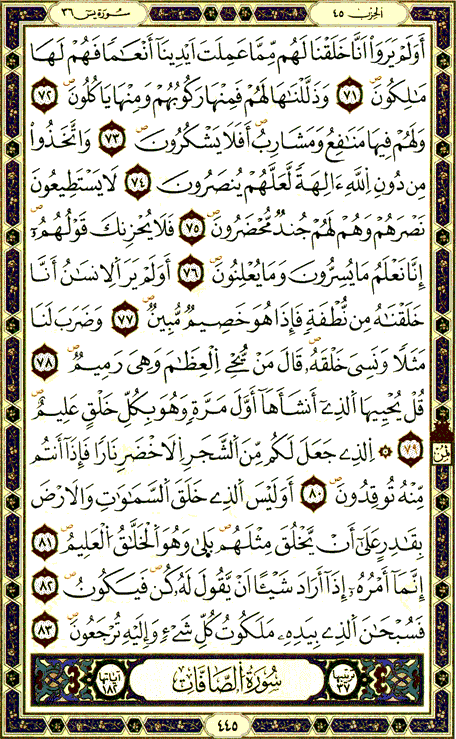 الحزب ٤٥
سورة يس ٣٦
أَوَلَمْ يَرَوَاْ اَنَّا خَلَقْنَا لَهُم مِّمَّا عَمِلَتَ اَيْدِينَآ أَنْعَٰمٗا فَهُمْ لَهَا
مَٰلِكُونَۖ ٧١ وَذَلَّلْنَٰهَا لَهُمْ فَمِنْهَا رَكُوبُهُمْ وَمِنْهَا يَاكُلُونَۖ ٧٢
وَلَهُمْ فِيهَا مَنَٰفِعُ وَمَشَارِبُۖ أَفَلَا يَشْكُرُونَۖ ٧٣ وَاتَّخَذُواْ
مِن دُونِ اِ۬للَّهِ ءَالِهَةٗ لَّعَلَّهُمْ يُنصَرُونَۖ ٧٤ لَا يَسْتَطِيعُونَ
نَصْرَهُمْ وَهُمْ لَهُمْ جُندٞ مُّحْضَرُونَۖ ٧٥ فَلَا يُحْزِنكَ قَوْلُهُمُۥٓۖ
إِنَّا نَعْلَمُ مَا يُسِرُّونَ وَمَا يُعْلِنُونَۖ ٧٦ أَوَلَمْ يَرَ اَ۬لِانسَٰنُ أَنَّا
خَلَقْنَٰهُ مِن نُّطْفَةٖ فَإِذَا هُوَ خَصِيمٞ مُّبِينٞۖ ٧٧ وَضَرَبَ لَنَا
مَثَلٗا وَنَسِيَ خَلْقَهُۥۖ قَالَ مَنْ يُّحْيِ اِ۬لْعِظَٰمَ وَهِيَ رَمِيمٞۖ ٧٨
قُلْ يُحْيِيهَا اَ۬لذِےٓ أَنشَأَهَآ أَوَّلَ مَرَّةٖ وَهُوَ بِكُلِّ خَلْقٍ عَلِيمٌۖ
٧٩ ۞ اِ۬لذِے جَعَلَ لَكُم مِّنَ اَ۬لشَّجَرِ اِ۬لَاخْضَرِ نَارٗا فَإِذَآ أَنتُم
مِّنْهُ تُوقِدُونَۖ ٨٠ أَوَلَيْسَ اَ۬لذِے خَلَقَ اَ۬لسَّمَٰوَٰتِ وَالَارْضَ
بِقَٰدِرٍ عَلَىٰٓ أَنْ يَّخْلُقَ مِثْلَهُمۖ بَلَىٰ وَهُوَ اَ۬لْخَلَّٰقُ اُ۬لْعَلِيمُۖ ٨١
إِنَّمَآ أَمْرُهُۥٓ إِذَآ أَرَادَ شَيْـٔاً اَنْ يَّقُولَ لَهُۥ كُن فَيَكُونُۖ ٨٢
فَسُبْحَٰنَ اَ۬لذِے بِيَدِهِۦ مَلَكُوتُ كُلِّ شَےْءٖ وَإِلَيْهِ تُرْجَعُونَۖ ٨٣
ثمن
ترتيبها ٣٧
سُورَةُ الصَّافَّاتِ
آياتها ١٨٢
٤٤٥